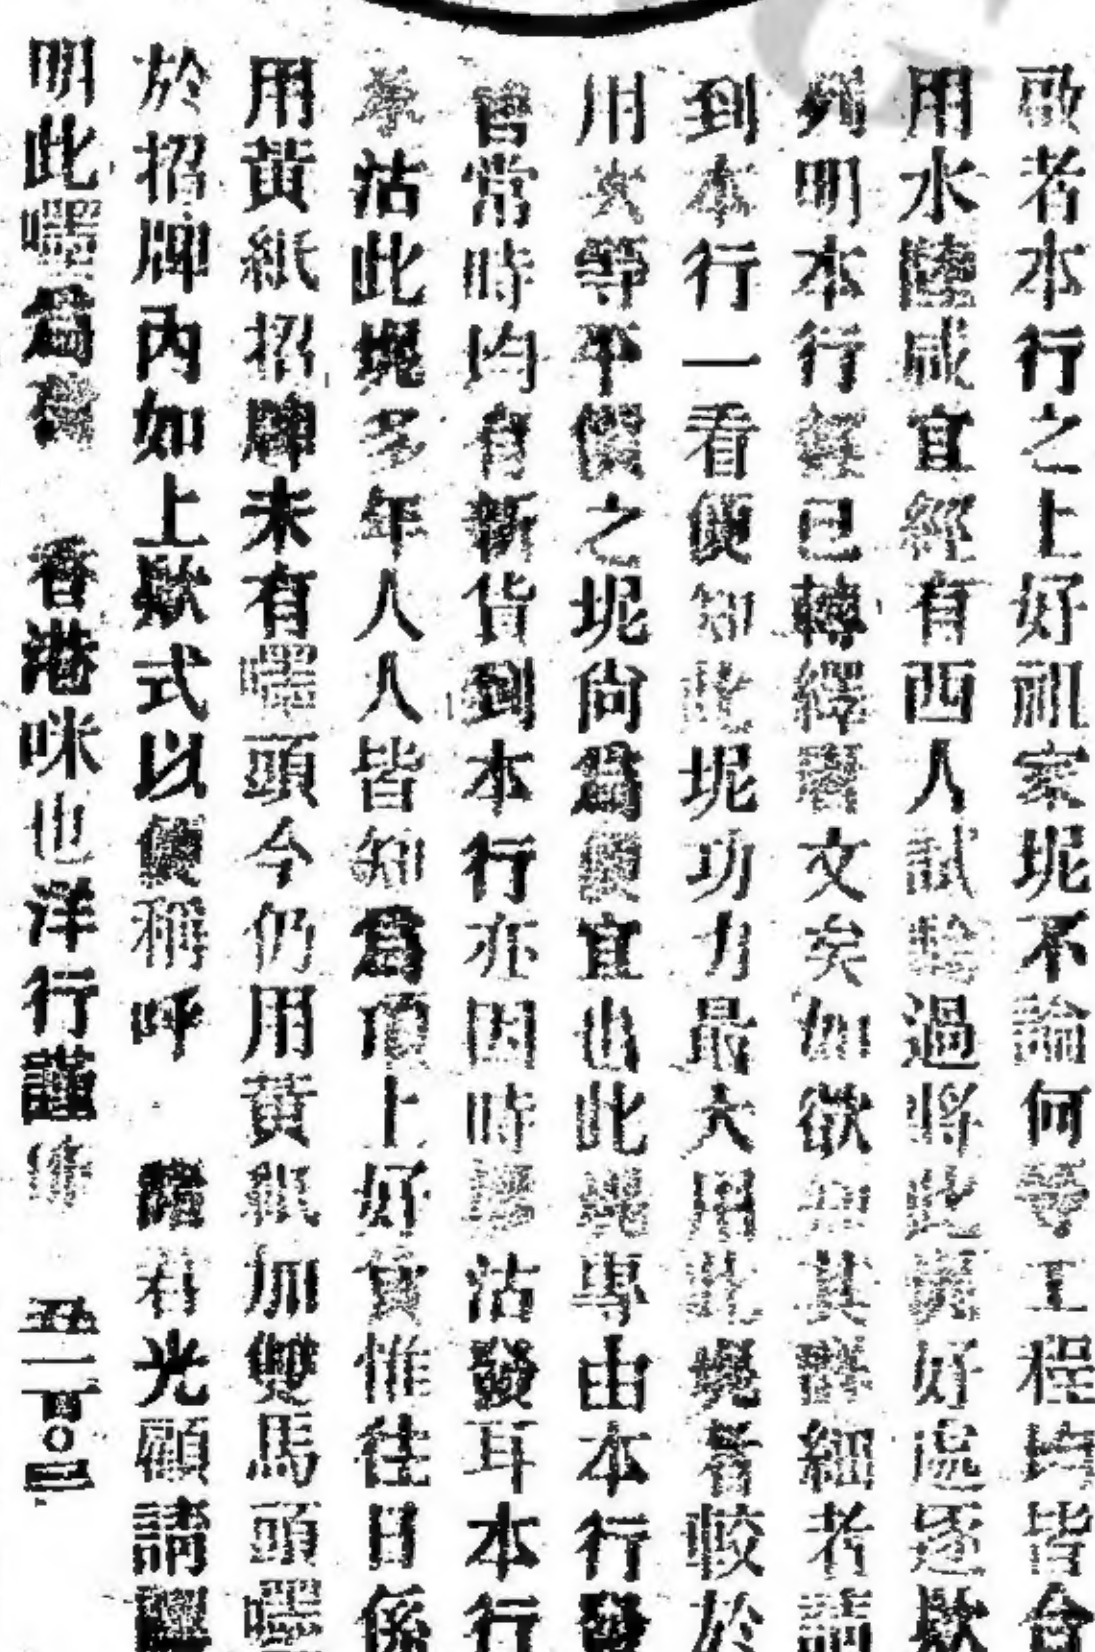 啟者本行之上好祖家坭不論何等工程均皆合
用水陸咸宜經有西人試驗過將此坭好處逐欵
列明本行經已轉繹唐文矣如欲知其詳細者請
到本行一看便知此坭功力最大用此坭者較於
用次等平價之坭尚為便宜也此坭專由本行發
售常時均有新貨到本行亦因時沽發耳本行
沽此坭多年人人皆知為頂上好貨惟往日係
用黃紙招牌未有嘜頭今仍用黃紙加雙馬頭嘜
於招牌內如上欵式以便稱呼 諸君光顧請認
明此嘜為據 香港咪也洋行謹啟 五一百〇三